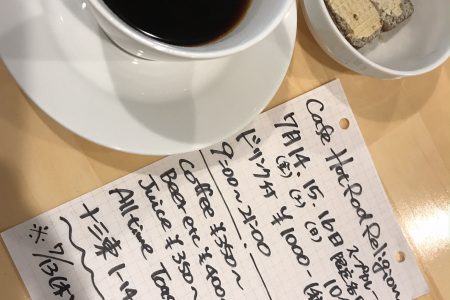 Cafe HotRodReligion
7月14.15.16日 限定
(金)(土)(日) 10
ドリンク付 ¥1000-
9:00〜21:00
Coffee ¥350〜
Beer etc ¥400
Juice ¥350〜
All time Toas
十三東 1-14
※ 7/13(木